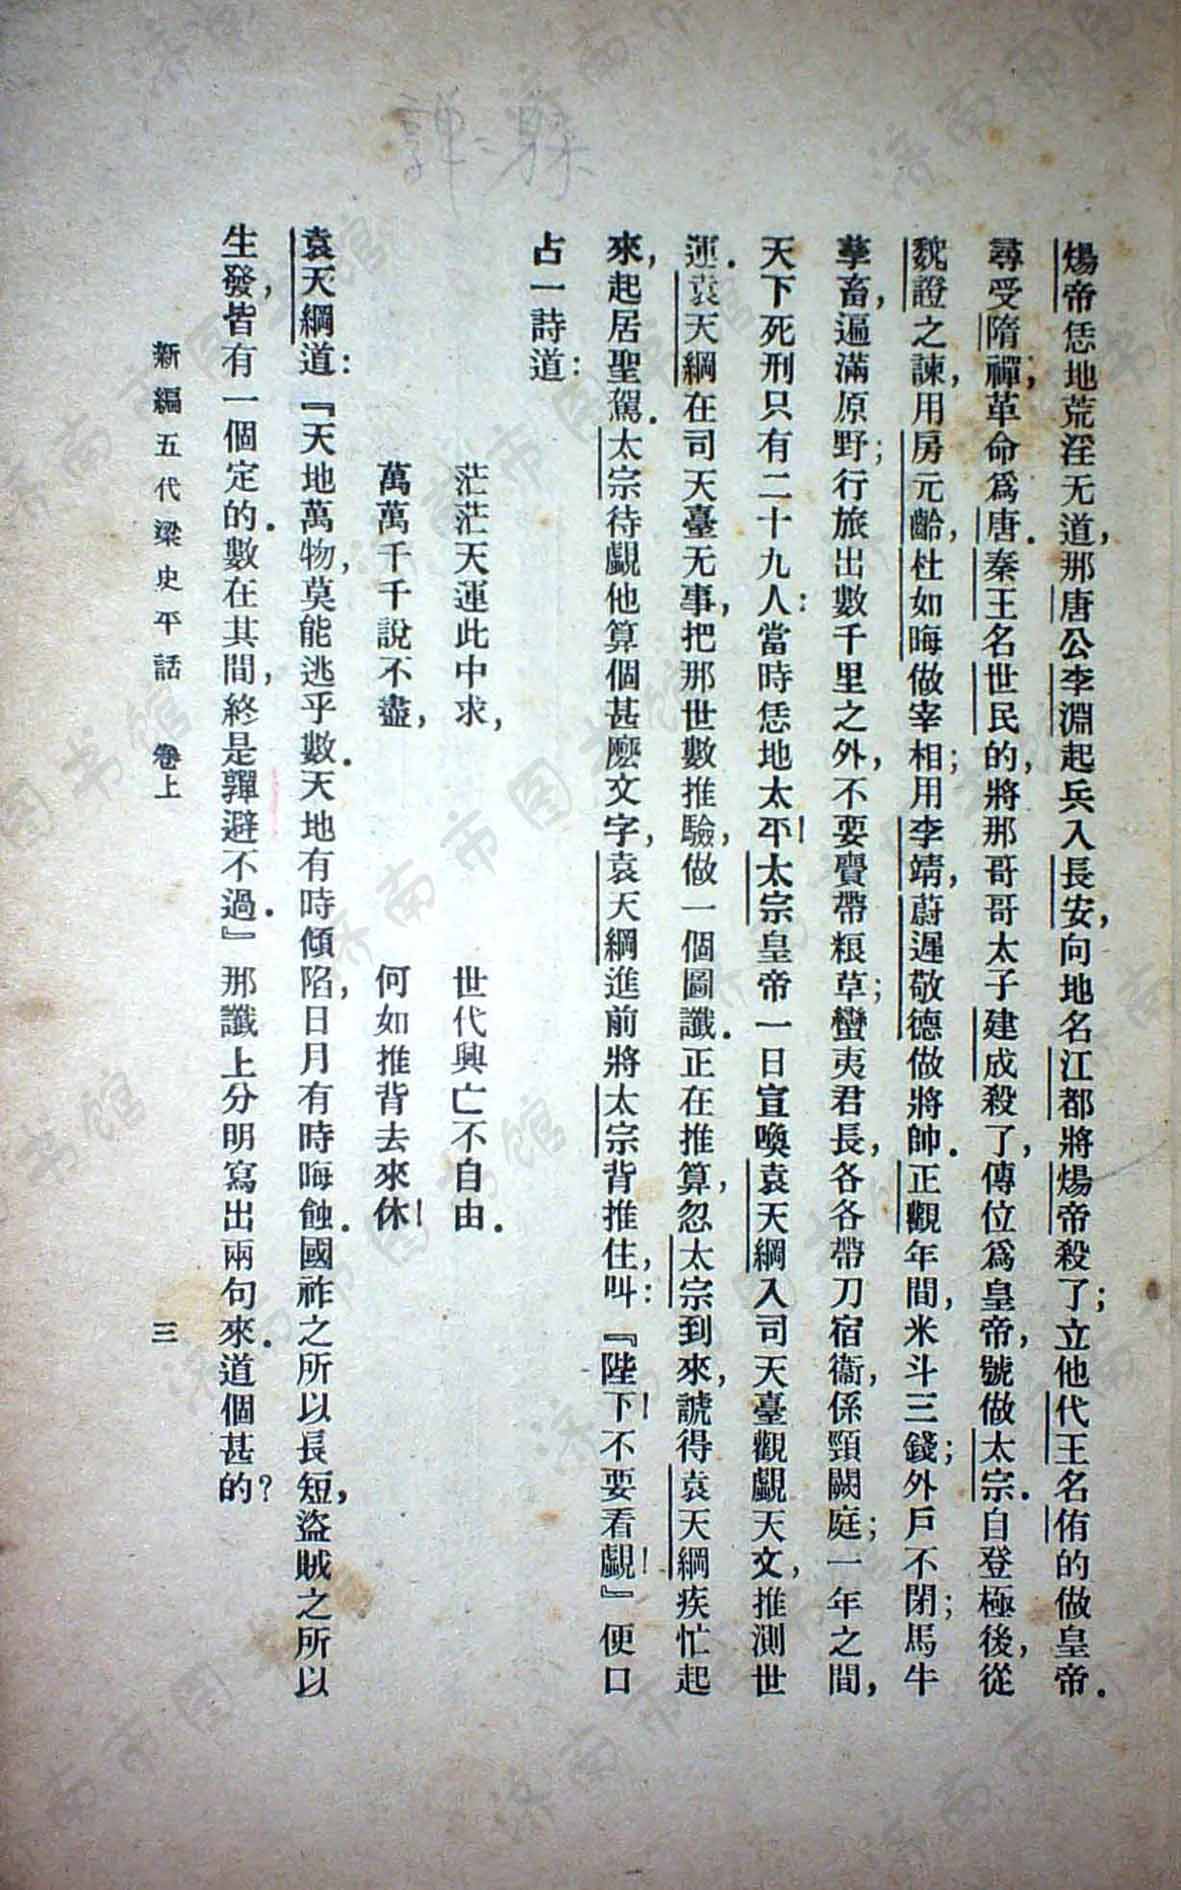 煬帝恁地荒淫无道，那唐公李淵起兵入長安，向地名江都將煬帝殺了；立他代王名侑的做皇帝．
尋受隋禪；革命爲唐．秦王名世民的，將那哥哥太子建成殺了，傳位爲皇帝，號做太宗．自登極後，從
魏證之諫，用房元齡，杜如晦做宰相；用李靖，蔚遲敬德做將帥．正觀年間，米斗三錢；外戶不閉；馬牛
孳畜，遍滿原野；行旅出數千里之外，不要賫帶粮草；蠻夷君長，各各帶刀宿衞，係頸闕庭；一年之間，
天下死刑只有二十九人：當時恁地太平！太宗皇帝一日宣喚袁天綱入司天臺觀覷天文，推測世
運．袁天綱在司天臺无事，把那世數推驗，做一個圖讖．正在推算，忽太宗到來，諕得袁天綱疾忙起
來，起居聖駕．太宗待覷他算個甚麽文字，袁天綱進前將太宗背推住，叫：『陛下！不要看覷！』便口
占一詩道：
茫茫天運此中求，　世代興亡不自由．
萬萬千千說不盡，　何如推背去來休！
袁天綱道：『天地萬物，莫能逃乎數．天地有時傾陷，日月有時晦蝕．國祚之所以長短，盜賊之所以
生發，皆有一個定的．數在其間，終是躲避不過．』那讖上分明寫出兩句來．道個甚的？
新編五代梁史平話　卷上　三
济南市图书馆